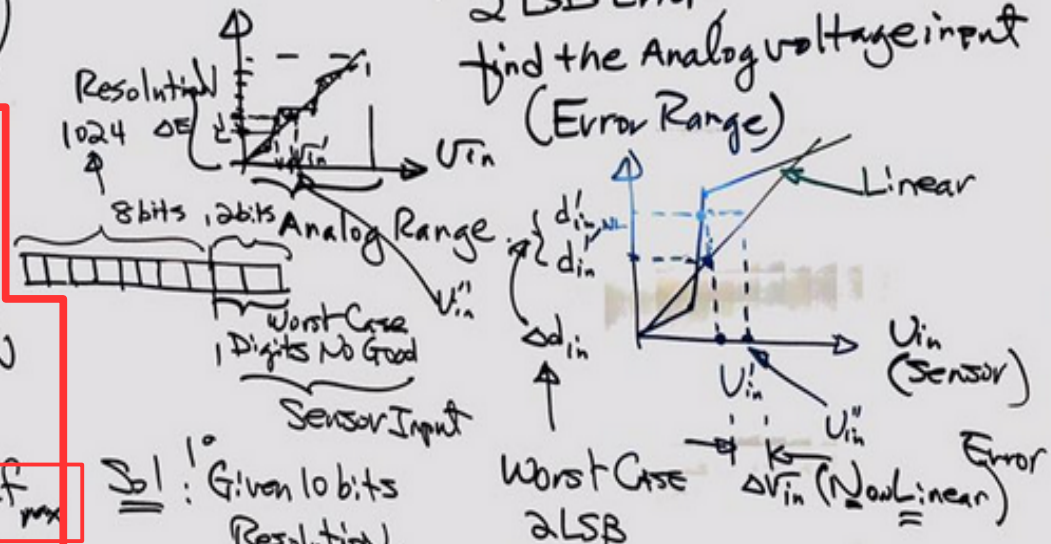 2 LSB Error
find the Analog voltage input
(Error Range)
Resolution
1024 ΔE
Vin
Vin'
8bits, 2bits
Analog Range
Vin''
Worst Case
Digits No Good
Sensor Input
Linear
d'in,NL
d'in
Δdin
Vin
(Sensor)
V'in
V''in
Error
ΔVin (NonLinear)
Worst Case
2LSB
Sol: 1° Given 10 bits
Resolution
fmax